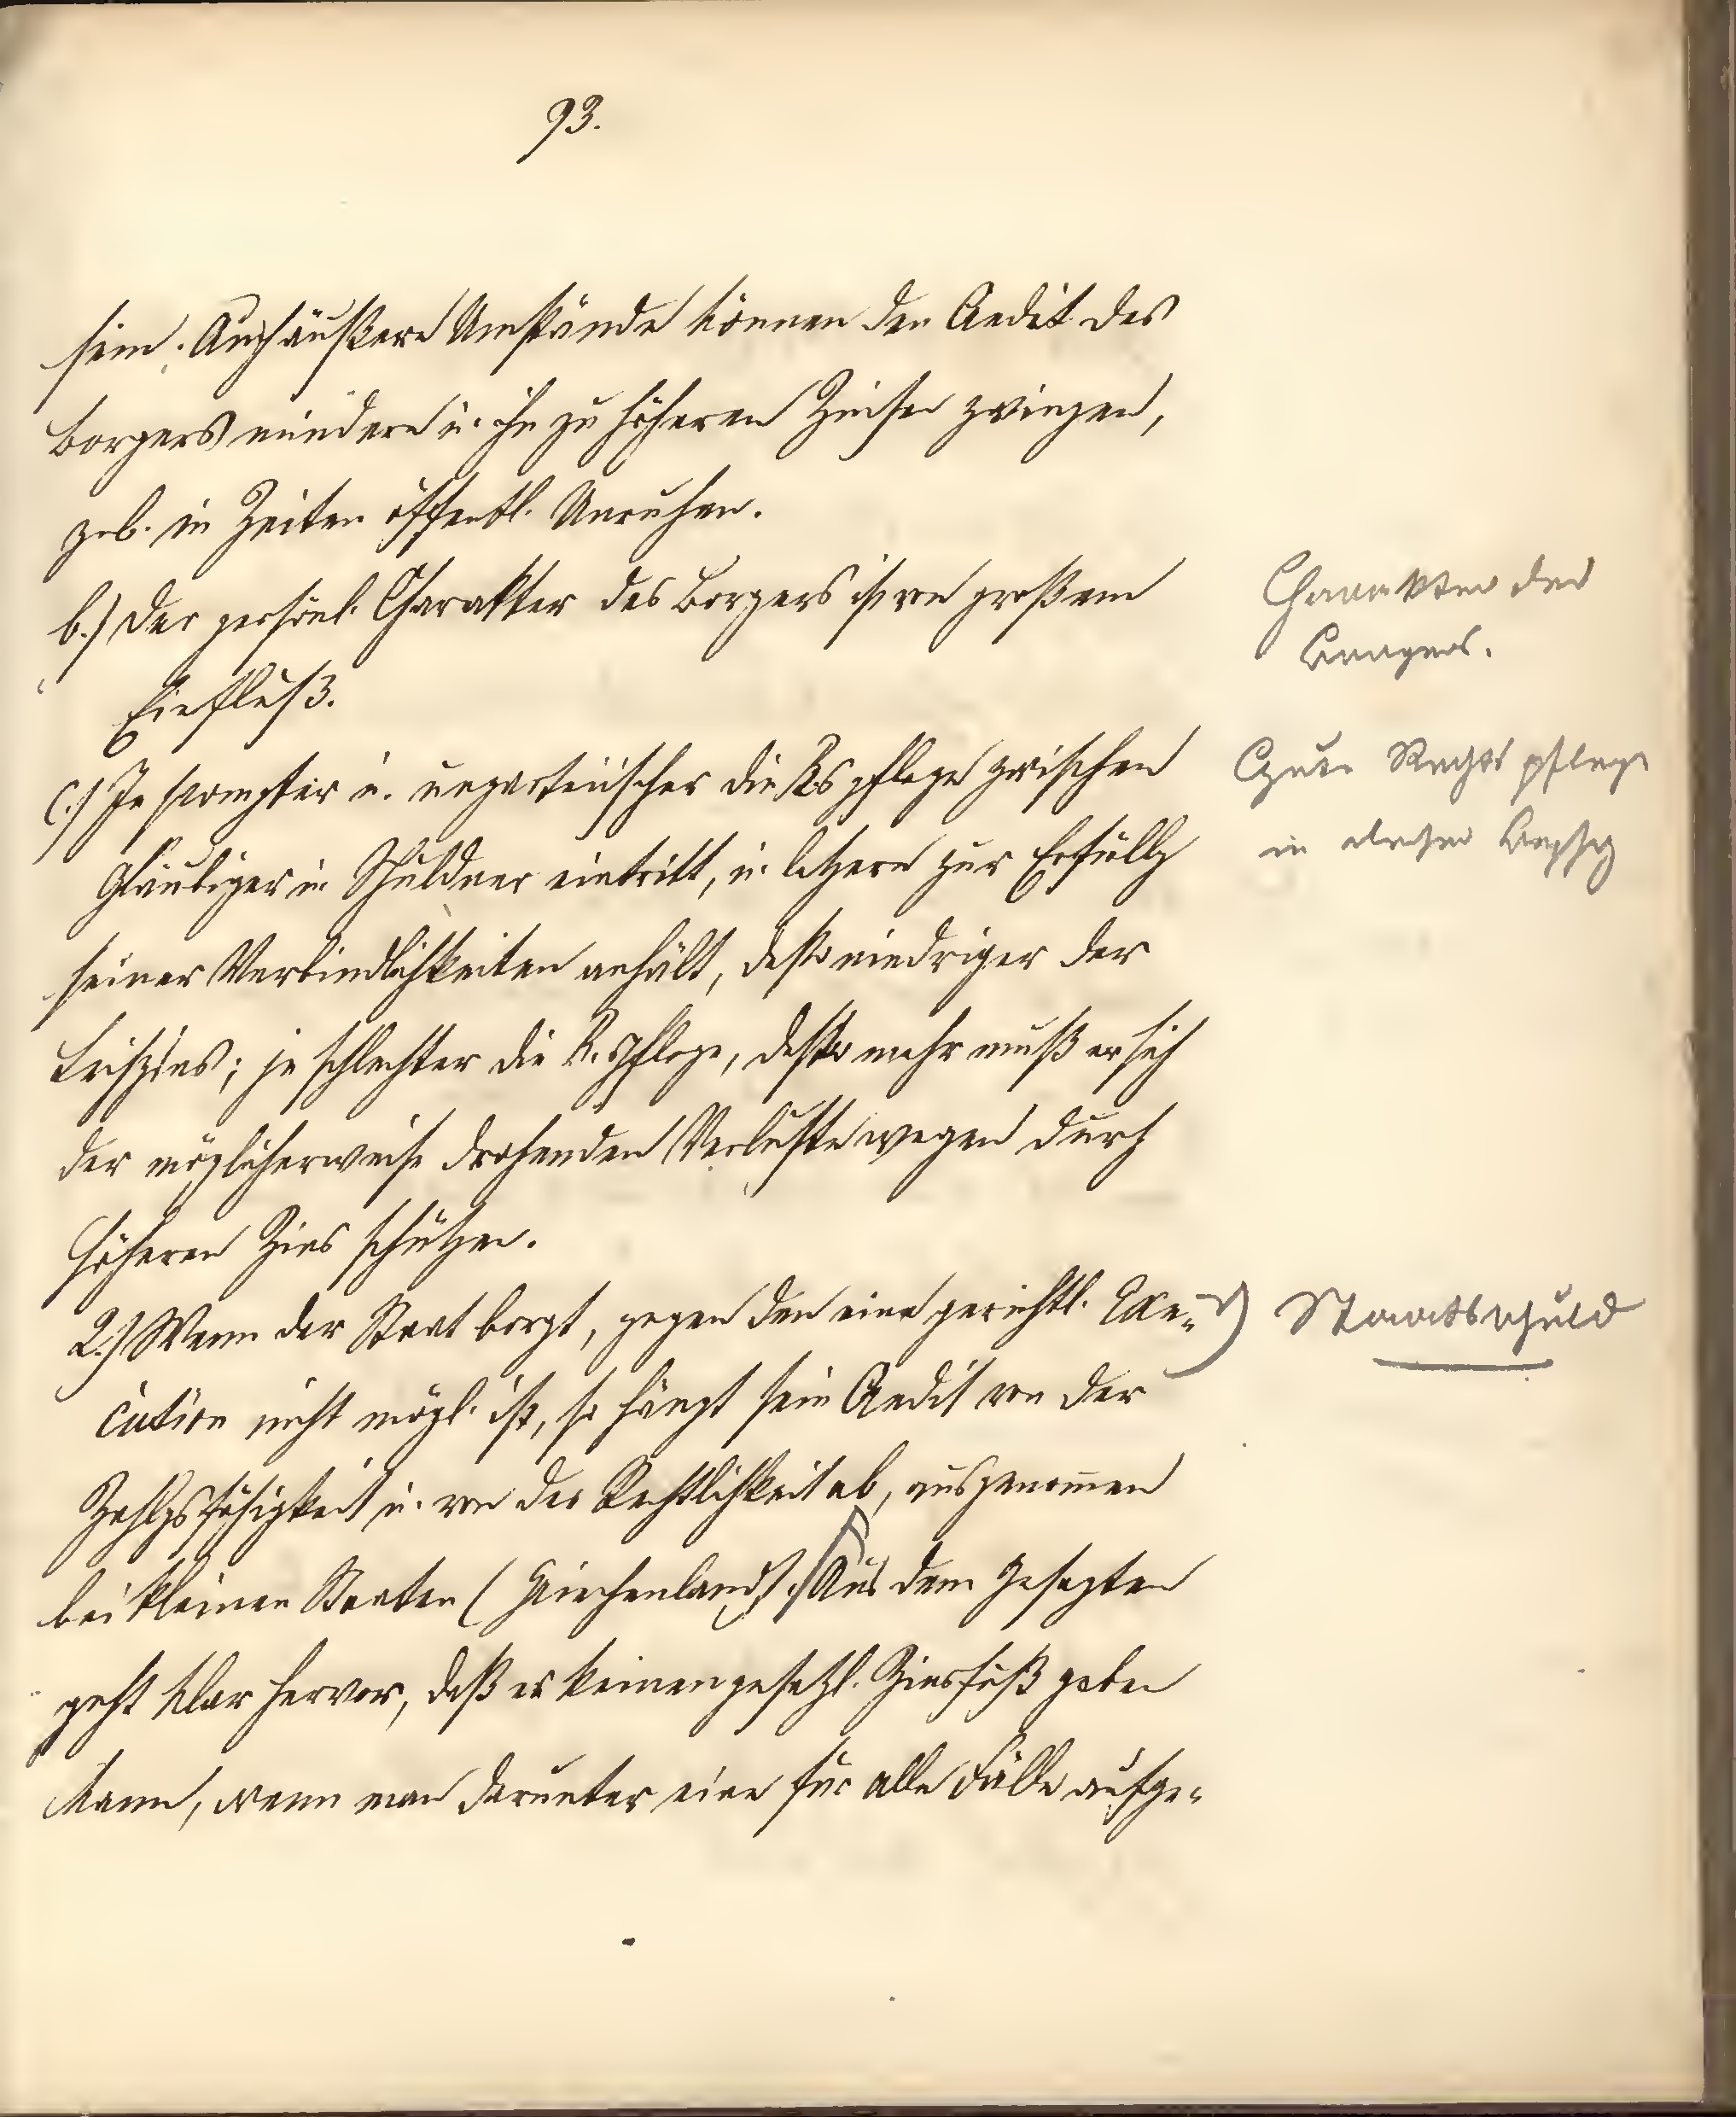 93.
sein. Auch äußere Umstände können den Credit des
Borgers mindern u. ihn zu höheren Zinsen zwingen,
z.b. in Zeiten öffentl. Unruhen.
b.) Der persönl. Charakter des Borgers ist von großem
Einfluß.
Charakter des
Borgers.
c.) Je prompter u. unparteiischer die Rspflege zwischen
Gläubiger u. Schuldner eintritt, u. letztern zur Erfüllg
seiner Verbindlichkeiten anhält, desto niedriger der
Leihzins; je schlechter die R.spflege, desto mehr muß er sich
der möglicherweise drohenden Verluste wegen durch
höheren Zins schützen.
Gute Rechtspflege
in dieser
2.) Wenn der Staat borgt, gegen den eine gerichtl. Exe-
cution nicht mögl. ist, so hängt sein Credit von der
Zahlgsfähigkeit u. von der Rechtlichkeit ab, ausgenommen
bei kleinen Staaten (Griechenland). Aus dem Gesagten
geht klar hervor, daß es keinen gesetzl. Zinsfuß geben
kann, wenn man darunter eine für alle Fälle aufge-
Staatsschuld